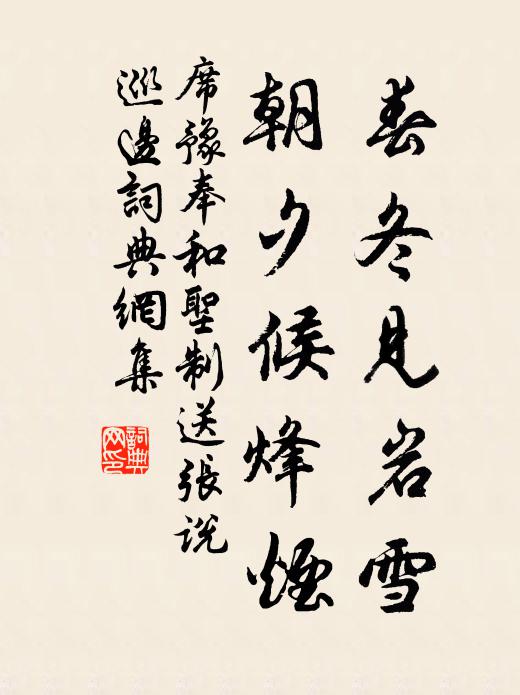 春冬見岩雪
朝夕候烽煙
席豫奉和聖制送張說
巡邊詞典網集
詞典
网印